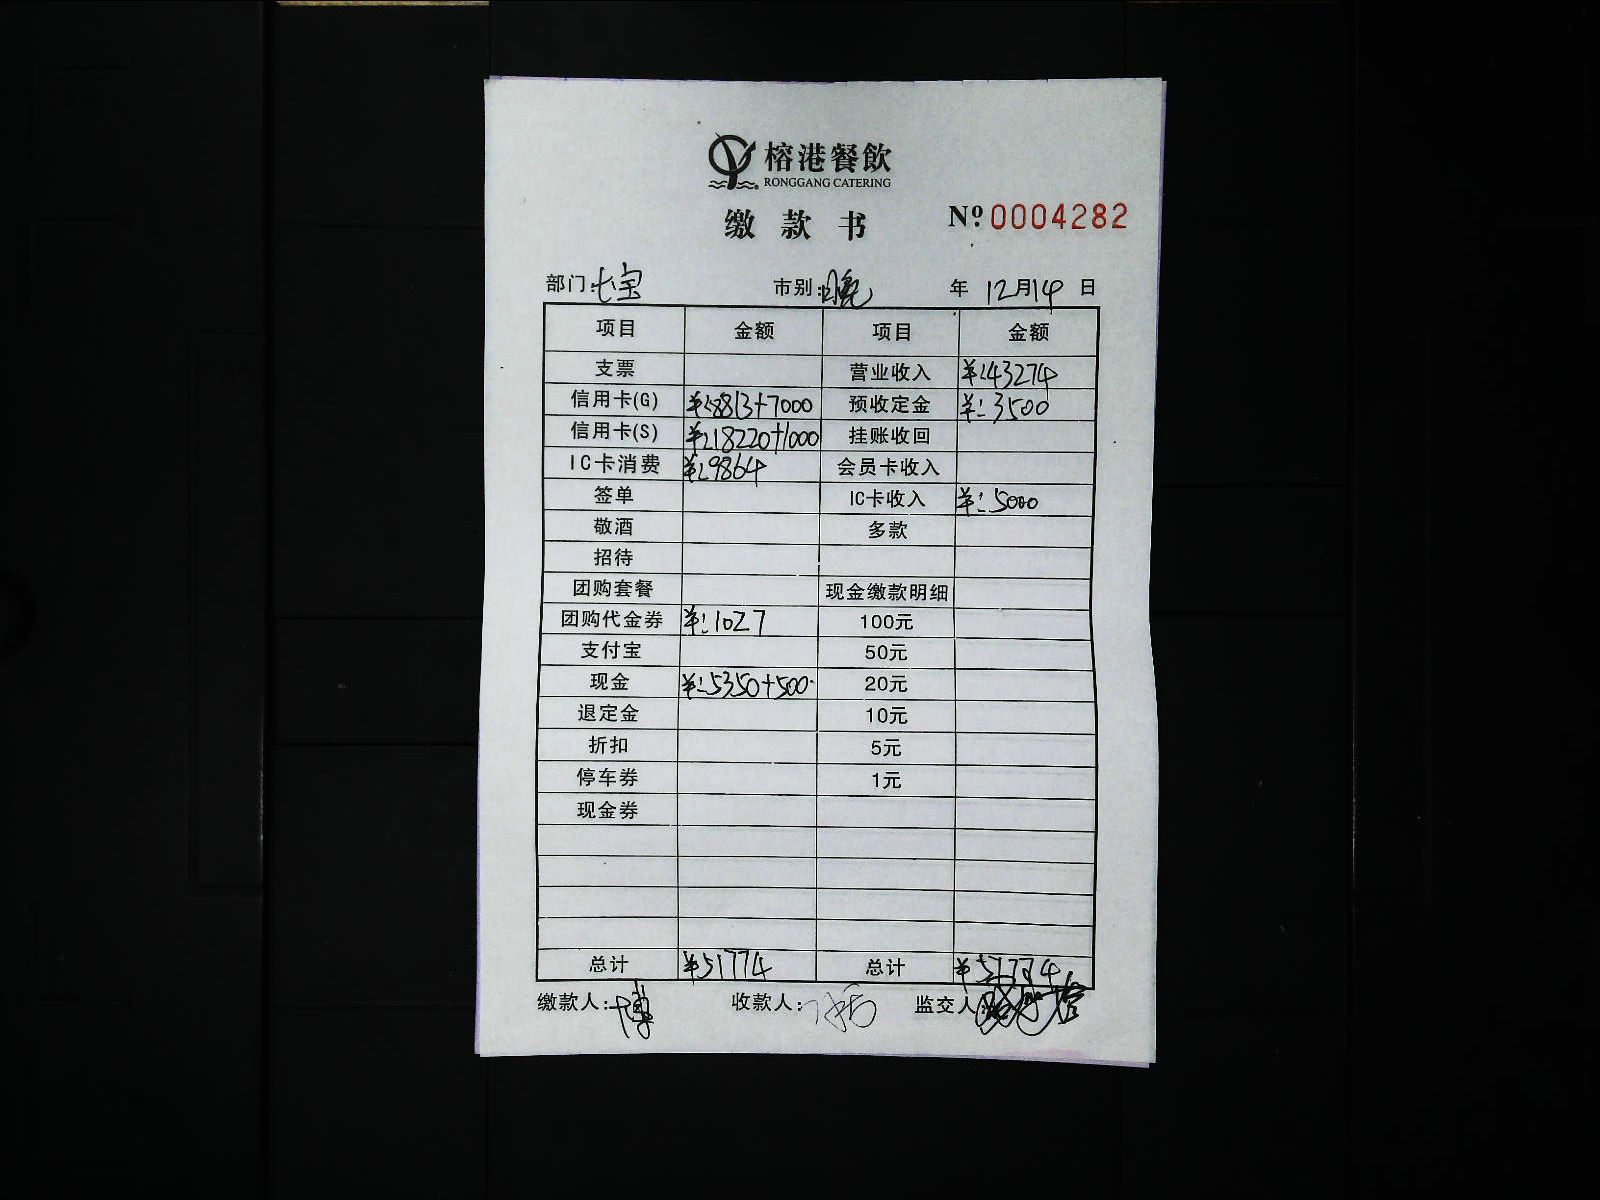 榕港餐飲
RONGGANG CATERING
缴款书 Nº 0004282
部门:七宝 市别:晚 年 12月14日
项目 金额 项目 金额
支票 营业收入 ¥:43274
信用卡(G) ¥:8813+7000 预收定金 ¥:3500
信用卡(S) ¥:18220+1000 挂账收回
IC卡消费 ¥:9864 会员卡收入
签单 IC卡收入 ¥:5000
敬酒 多款
招待
团购套餐 现金缴款明细
团购代金券 ¥:1027 100元
支付宝 50元
现金 ¥:5350+500 20元
退定金 10元
折扣 5元
停车券 1元
现金券
总计 ¥51774 总计 ¥51774
缴款人: 收款人: 监交人: